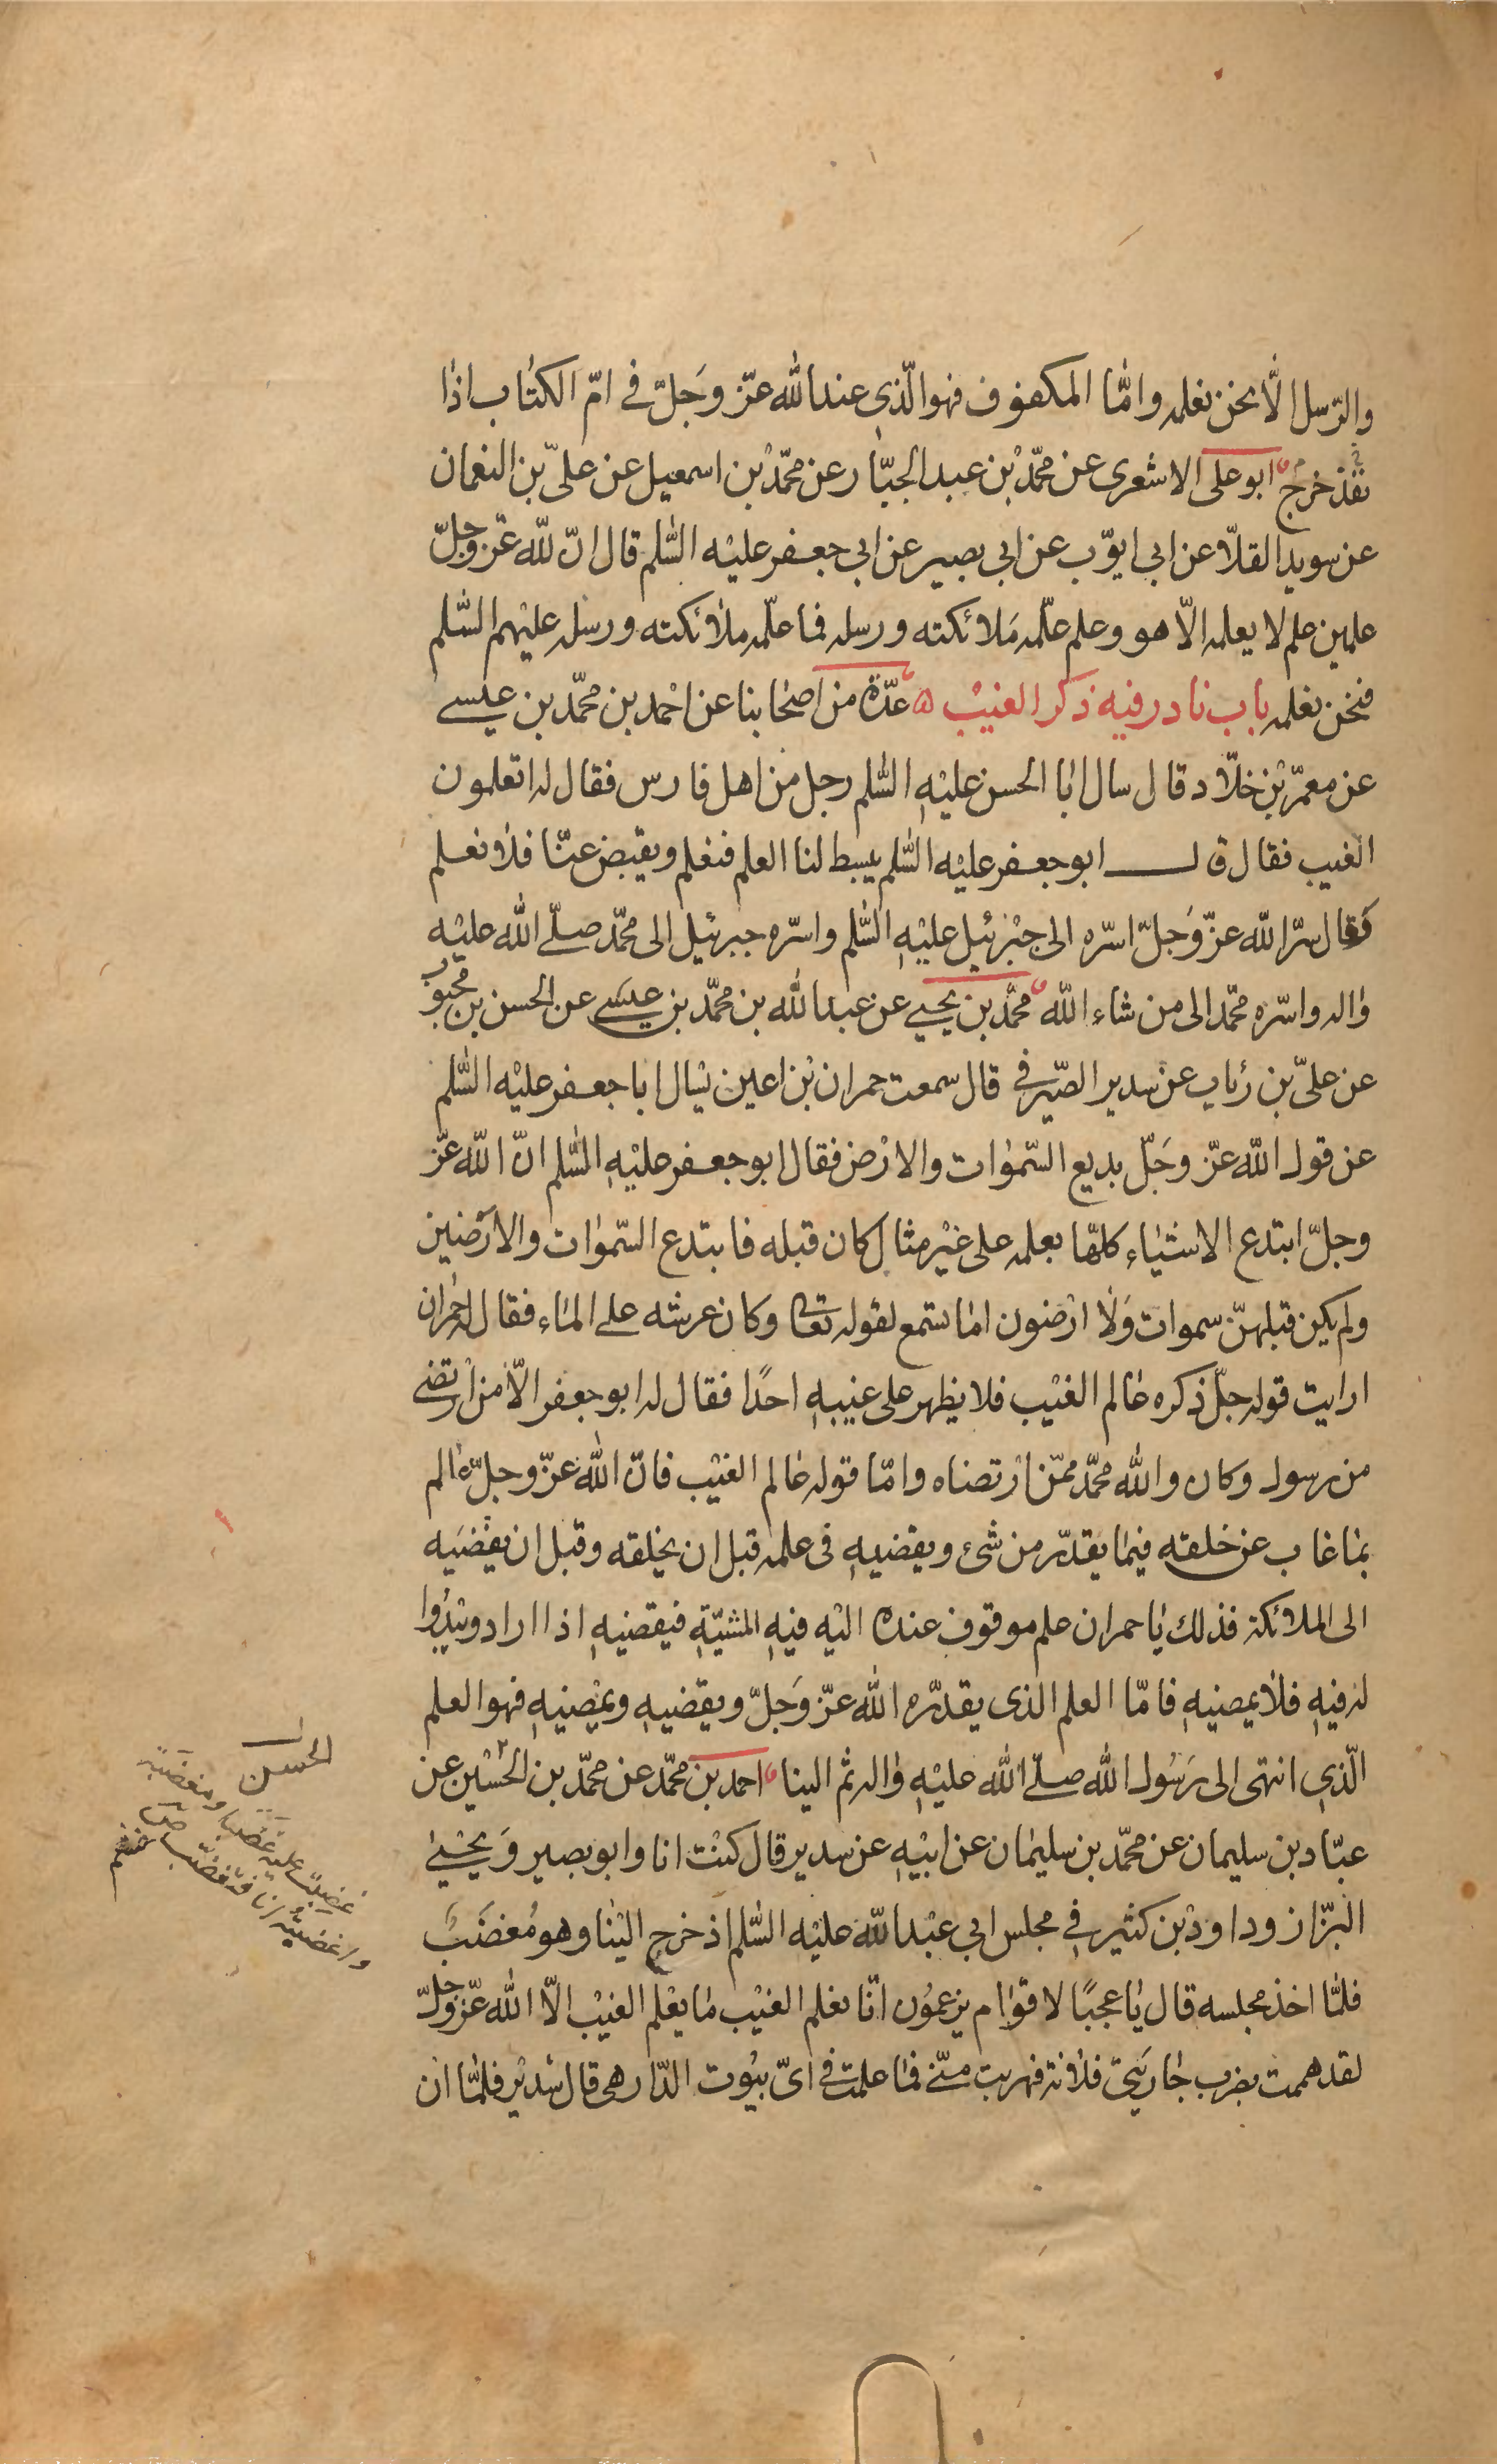 والرّسل الّا نحن نعلمه وامّا المكفوف فهو الّذي عند الله عزّ وجَلّ في امّ الكتاب اذا
نفذ خرج ابو على الاشعرى عن محمّد بن عبد الجبّار عن محمّد بن اسمعيل عن علىّ بن النعمان
عن سويد القلّا عن ابي ايوّب عن ابي بصير عن ابي جعفر عليْه السّلم قال انّ للّه عزّ وجلّ
علمين علم لا يعلمه الّا هو وعلم علّمه مَلائكته ورسله فما علّمه ملائكته ورسله عليهم السّلم
فنحن نعلمه باب نادر فيه ذكر الغيْب ه عدّة من اصحابنا عن احْمد بن محمّد بن عيسى
عن معمّر بْن خلّاد قال سال ابا الحسن عليْهِ السّلم رجل من اهل فارس فقال له اتعلمون
الغيب فقال قال ابو جعفر عليْه السّلم يبسط لنا العلم فنعلم ويقبض عنّا فلا نعلم
فقال سرّ اللّه عزّ وَجلّ اسّره الى جبْرئيل عليْهِ السّلم واسّره جبرئيل الى محمّد صلّى الله عليْه
واله واسّره محمّد الى من شاء اللّه محمّد بن يحيى عن عبد الله بن محمّد بن عيسَى عن الحسن بن محبوب
عن علىّ بن رئاب عن سدير الصّيرفي قال سمعت حمران بْن اعين يسْال ابا جعفر عليْه السّلم
عن قول اللّه عزّ وجَلّ بديع السّموات والارْض فقال ابو جعفر عليْهِ السّلم انّ اللّه عزّ
وجلّ ابتدع الاشياء كلهّا بعلمه على غيْر مثال كان قبله فابتدع السّموات والارَضين
ولم يكن قبلهنّ سموات وَلا ارْضون اما تسمع لقوله تعالى وكان عرشه على الماء فقال له حمران
ارايت قوله جلّ ذكره عالم الغيْب فلا يظهر على غيبهِ احدًا فقال له ابو جعفر الّا من ارْتضى
من رسول وكان والله محمّد ممّن ارْتضاه وامّا قوله عالم الغيْب فانّ الله عزّ وجلّ عالم
بما غاب عن خلقه فيما يقدّر من شئ ويقضيهِ في علمه قبل ان يخلقه وقبل ان يفضيَه
الى الملائكة فذلك يا حمران علم موقوف عنده اليْه فيهِ المشيّةِ فيقضيهِ اذا اراد ويبدُوا
له فيهِ فلا يمضيهِ فامّا العلم الذى يقدّره الله عزّ وَجَلّ ويقضيهِ ويمْضيهِ فهو العلم
الّذي انتهى الى رَسُول الله صلىّ الله عليْهِ واله ثم الينا احمد بن محمّد عن محمّد بن الحُسْين عن
عبّاد بن سليمان عن محمّد بن سليمان عن ابيْهِ عن سدير قال كنْت انا وابو بصير وَيحْيىٰ
البزّاز وداود بْن كثير في مجلس ابي عبْد الله عليْه السّلم اذ خرج اليْنا وهو مُغضَبٌ
فلمّا اخذ مجلسه قال يا عجبًا لاقوام يزعموُن انّا نعلم الغيْب ما يعْلم الغيْب الّا الله عزّ وجلّ
لقد هممت بضرب جاريَتي فلانة فهربت منّي فما علمت في اىّ بيُوت الدّار هي قال سُديْر فلمّا ان
الحسن
غضبتُ عليه غضبا ومغضبة
واغضبته انا فتغضّب